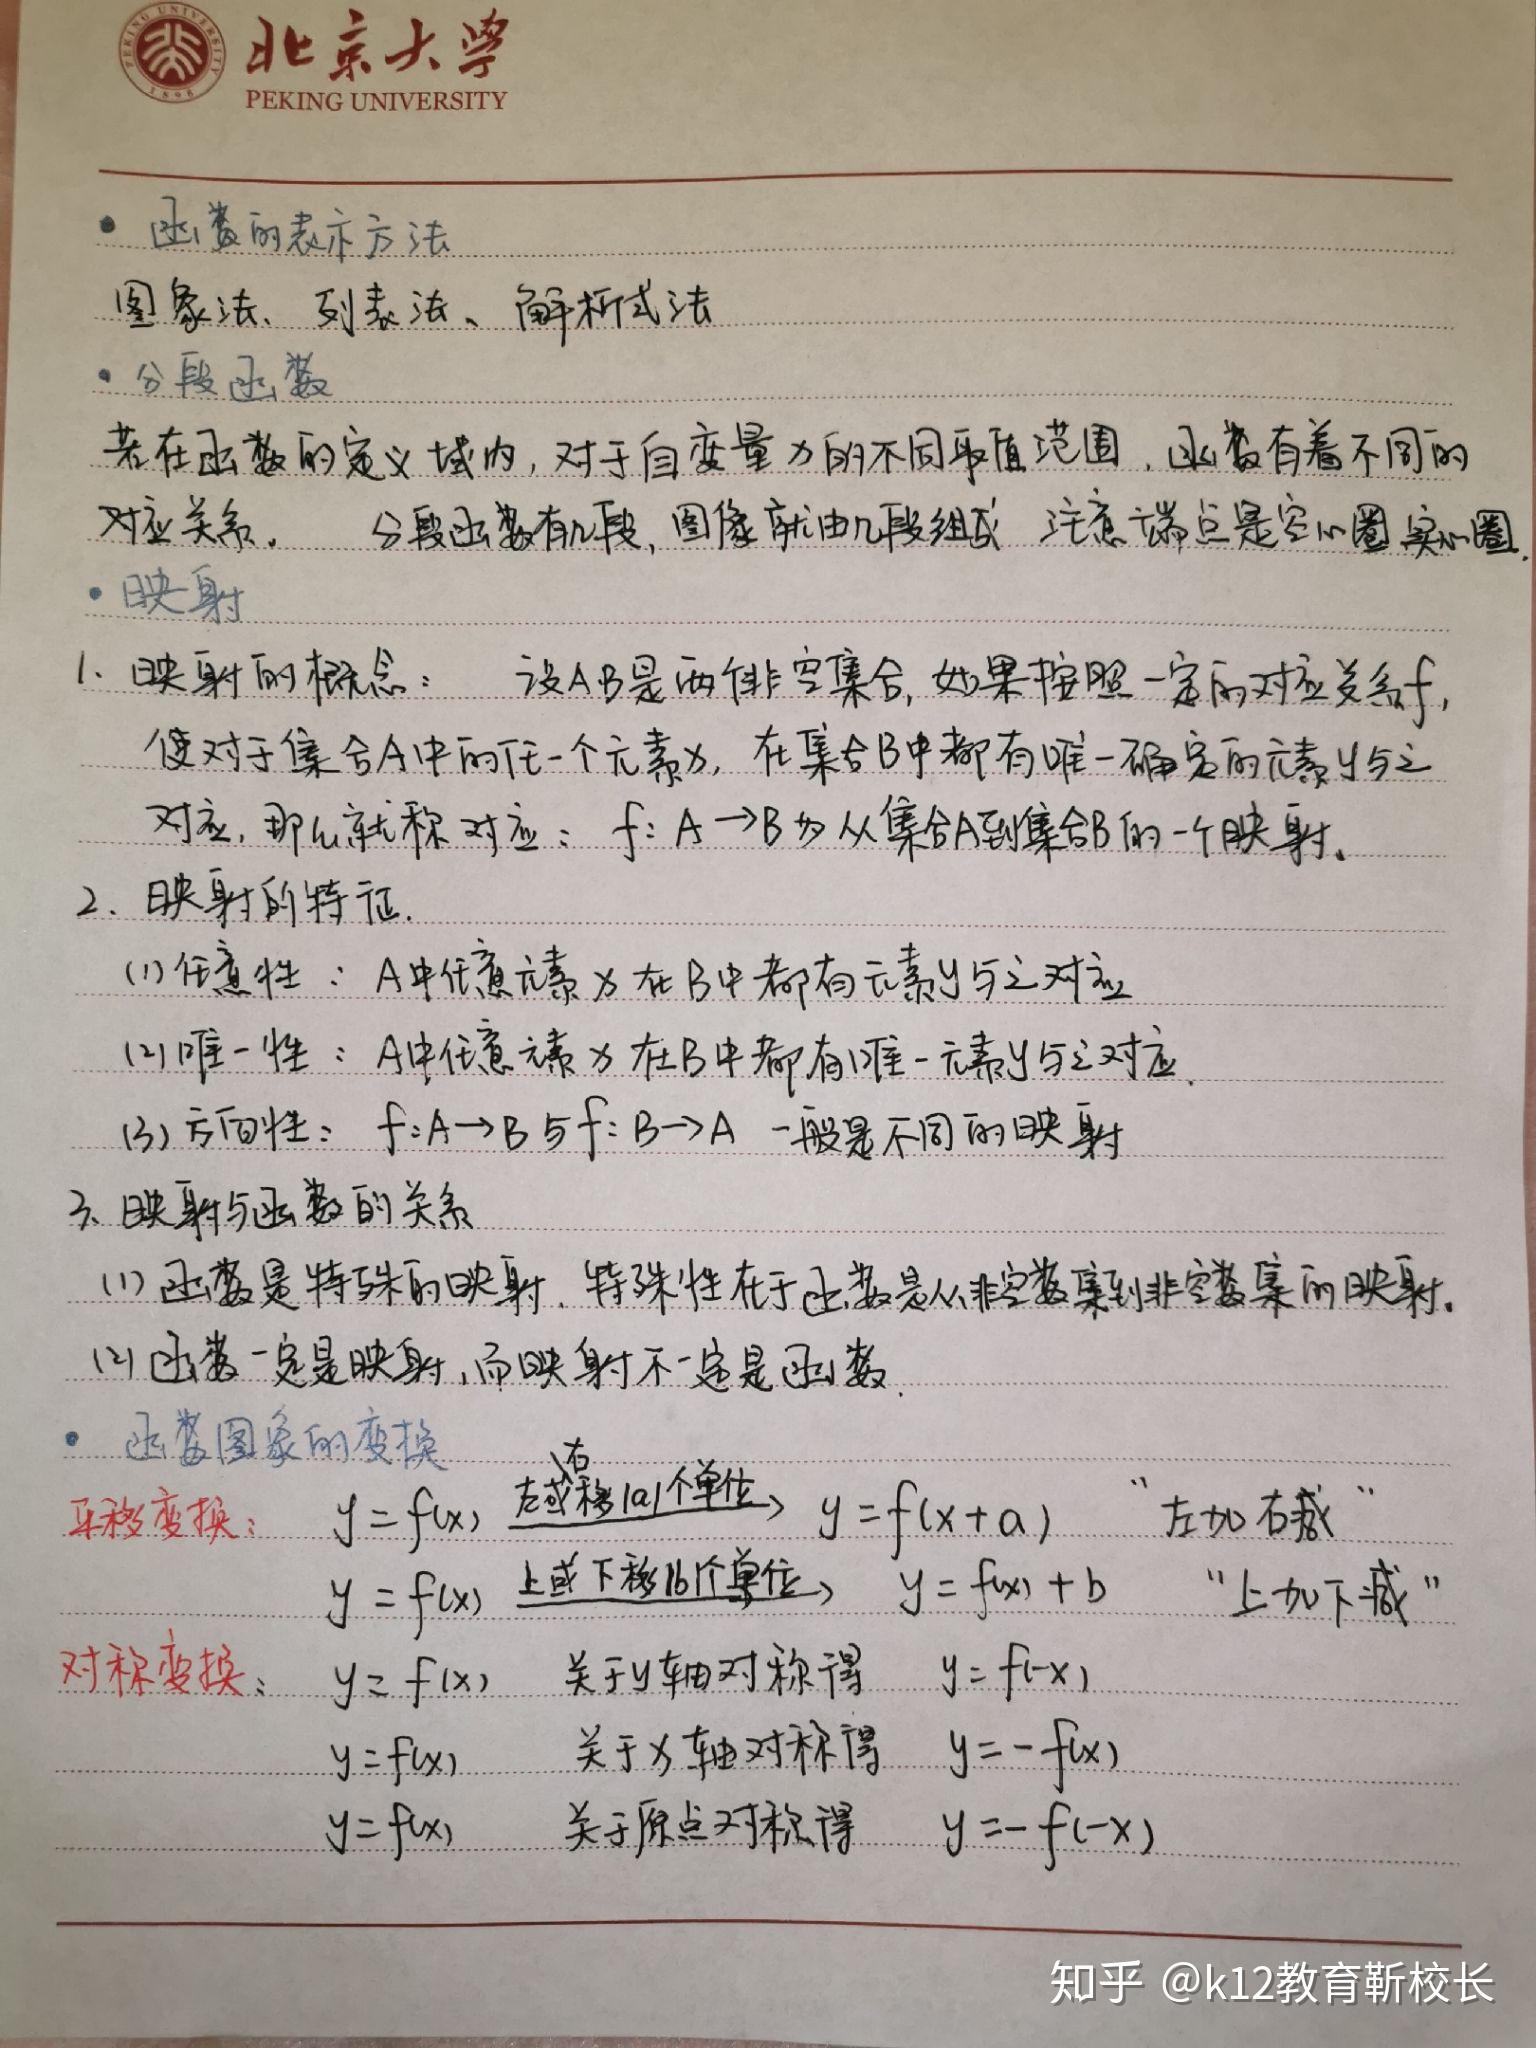 北京大学
PEKING UNIVERSITY
PEKING UNIVERSITY
1898
• 函数的表示方法
图象法、列表法、解析式法
• 分段函数
若在函数的定义域内,对于自变量x的不同取值范围,函数有着不同的
对应关系. 分段函数有几段,图像就由几段组成 注意端点是空心圈 实心圈.
• 映射
1. 映射的概念: 设A B是两个非空集合,如果按照一定的对应关系f,
使对于集合A中的任一个元素x,在集合B中都有唯一确定的元素y与之
对应,那么就称对应: f: A→B为从集合A到集合B的一个映射.
2. 映射的特征.
(1)任意性: A中任意元素x在B中都有元素y与之对应
(2)唯一性: A中任意元素x在B中都有唯一元素y与之对应.
(3)方向性: f:A→B与f:B→A 一般是不同的映射
3. 映射与函数的关系
(1)函数是特殊的映射.特殊性在于函数是从非空数集到非空数集的映射.
(2)函数一定是映射,而映射不一定是函数.
• 函数图象的变换
平移变换: y=f(x) 左或右移|a|个单位→ y=f(x+a) “左加右减”
y=f(x) 上或下移|b|个单位→ y=f(x)+b “上加下减”
对称变换: y=f(x) 关于y轴对称得 y=f(-x)
y=f(x) 关于x轴对称得 y=-f(x)
y=f(x) 关于原点对称得 y=-f(-x)
知乎 @k12教育靳校长